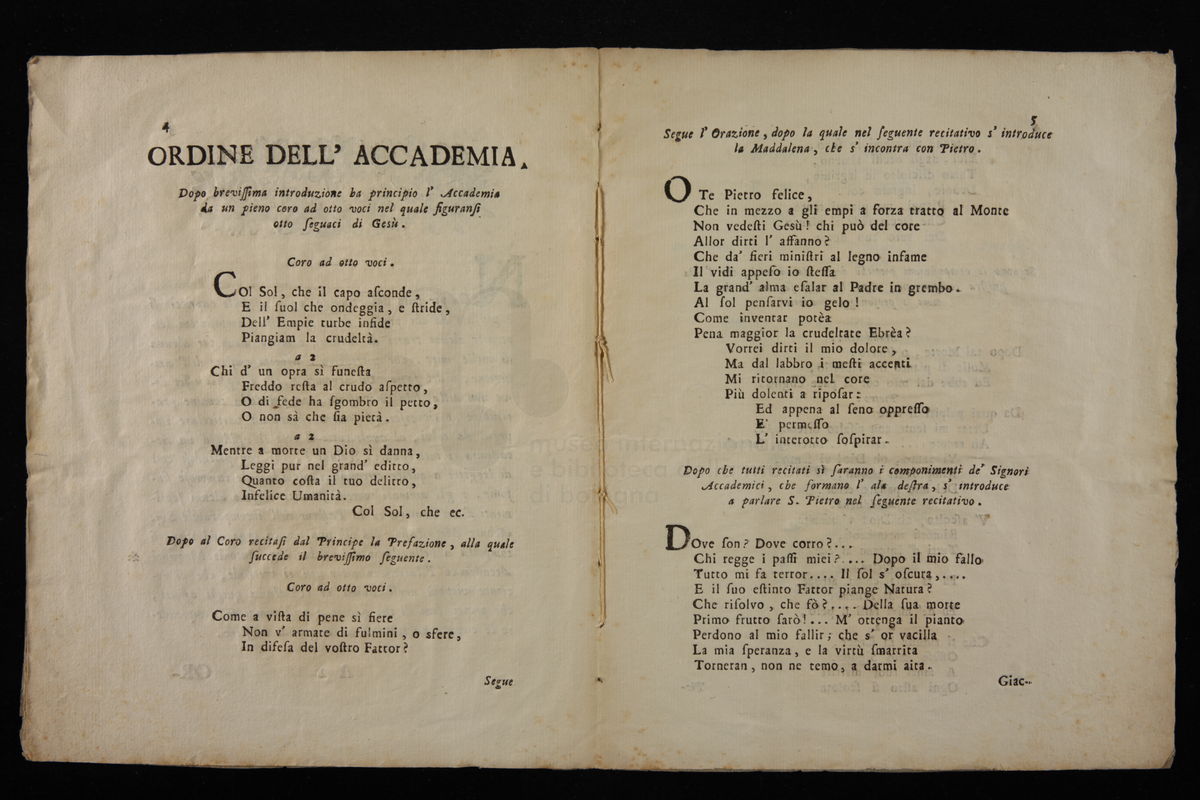 4
ORDINE DELL' ACCADEMIA.
Dopo breviſſima introduzione ha principio l' Accademia
da un pieno coro ad otto voci nel quale figuranſi
otto ſeguaci di Gesù.
Coro ad otto voci.
COl Sol, che il capo aſconde,
E il ſuol che ondeggia, e ſtride,
Dell' Empie turbe infide
Piangiam la crudeltà.
a 2
Chi d' un opra sì funeſta
Freddo reſta al crudo aſpetto,
O di fede ha ſgombro il petto,
O non sà che ſia pietà.
a 2
Mentre a morte un Dio sì danna,
Leggi pur nel grand' editto,
Quanto coſta il tuo delitto,
Infelice Umanità.
Col Sol, che ec.
Dopo al Coro recitaſi dal Principe la Prefazione, alla quale
ſuccede il breviſſimo ſeguente.
Coro ad otto voci.
Come a viſta di pene sì fiere
Non v' armate di fulmini, o sfere,
In difeſa del voſtro Fattor?
Segue
5
Segue l' Orazione, dopo la quale nel ſeguente recitativo s' introduce
la Maddalena, che s' incontra con Pietro.
O Te Pietro felice,
Che in mezzo a gli empi a forza tratto al Monte
Non vedeſti Gesù! chi può del core
Allor dirti l' affanno?
Che da' fieri miniſtri al legno infame
Il vidi appeſo io ſteſſa
La grand' alma eſalar al Padre in grembo.
Al ſol penſarvi io gelo!
Come inventar potèa
Pena maggior la crudeltate Ebrèa?
Vorrei dirti il mio dolore,
Ma dal labbro i meſti accenti
Mi ritornano nel core
Più dolenti a ripoſar:
Ed appena al ſeno oppreſſo
E' permeſſo
L' interotto ſoſpirar.
Dopo che tutti recitati sì ſaranno i componimenti de' Signori
Accademici, che formano l' ala deſtra, s' introduce
a parlare S. Pietro nel ſeguente recitativo.
DOve ſon? Dove corro?...
Chi regge i paſſi miei?.... Dopo il mio fallo
Tutto mi fa terror.... Il ſol s' oſcura,....
E il ſuo eſtinto Fattor piange Natura?
Che riſolvo, che fò?.... Della ſua morte
Primo frutto ſarò!... M' ottenga il pianto
Perdono al mio fallir; che s' or vacilla
La mia ſperanza, e la virtù ſmarrita
Torneran, non ne temo, a darmi aita.
Giac-